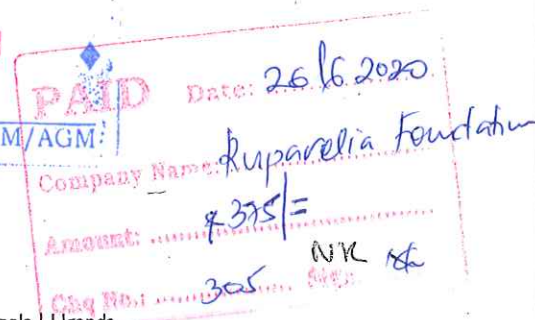 PAID Date: 26/6 2020
M/AGM:
Company Name: Ruparelia Foundation
Amount: 375/=
NR
Chq No: 305 Sign